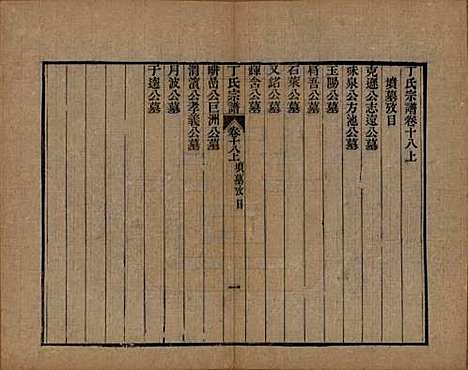 丁氏宗譜卷十八上
墳墓攷目
克遜公志遠公墓
味泉公方池公墓
玉陽公墓
梧吾公墓
石萊公墓
又銘公墓
錬舍公墓
丁氏宗譜 卷十八上 墳墓攷目 一
畊岳公巨洲公墓
渭濱公孝義公墓
月波公墓
于遠公墓